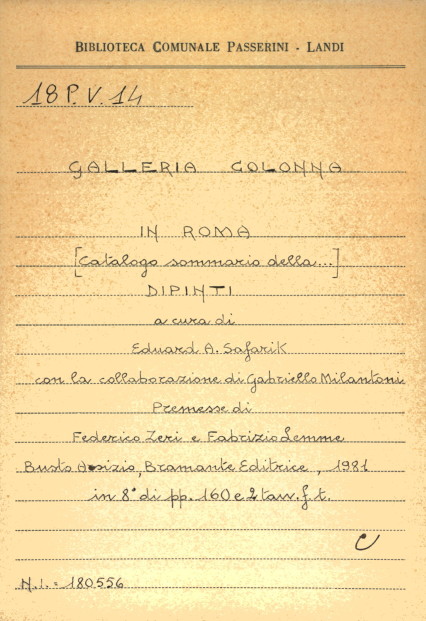 BIBLIOTECA COMUNALE PASSERINI - LANDI
18 P. V. 14
GALLERIA COLONNA
IN ROMA
[Catalogo sommario della...]
DIPINTI
a cura di
Eduard A. Safarik
con la collaborazione di Gabriello Milantoni
Premesse di
Federico Zeri e Fabrizio Lemme
Busto Arsizio, Bramante Editrice, 1981
in 8° di pp. 160 e 2 tav. f. t.
C
N.i. = 180556